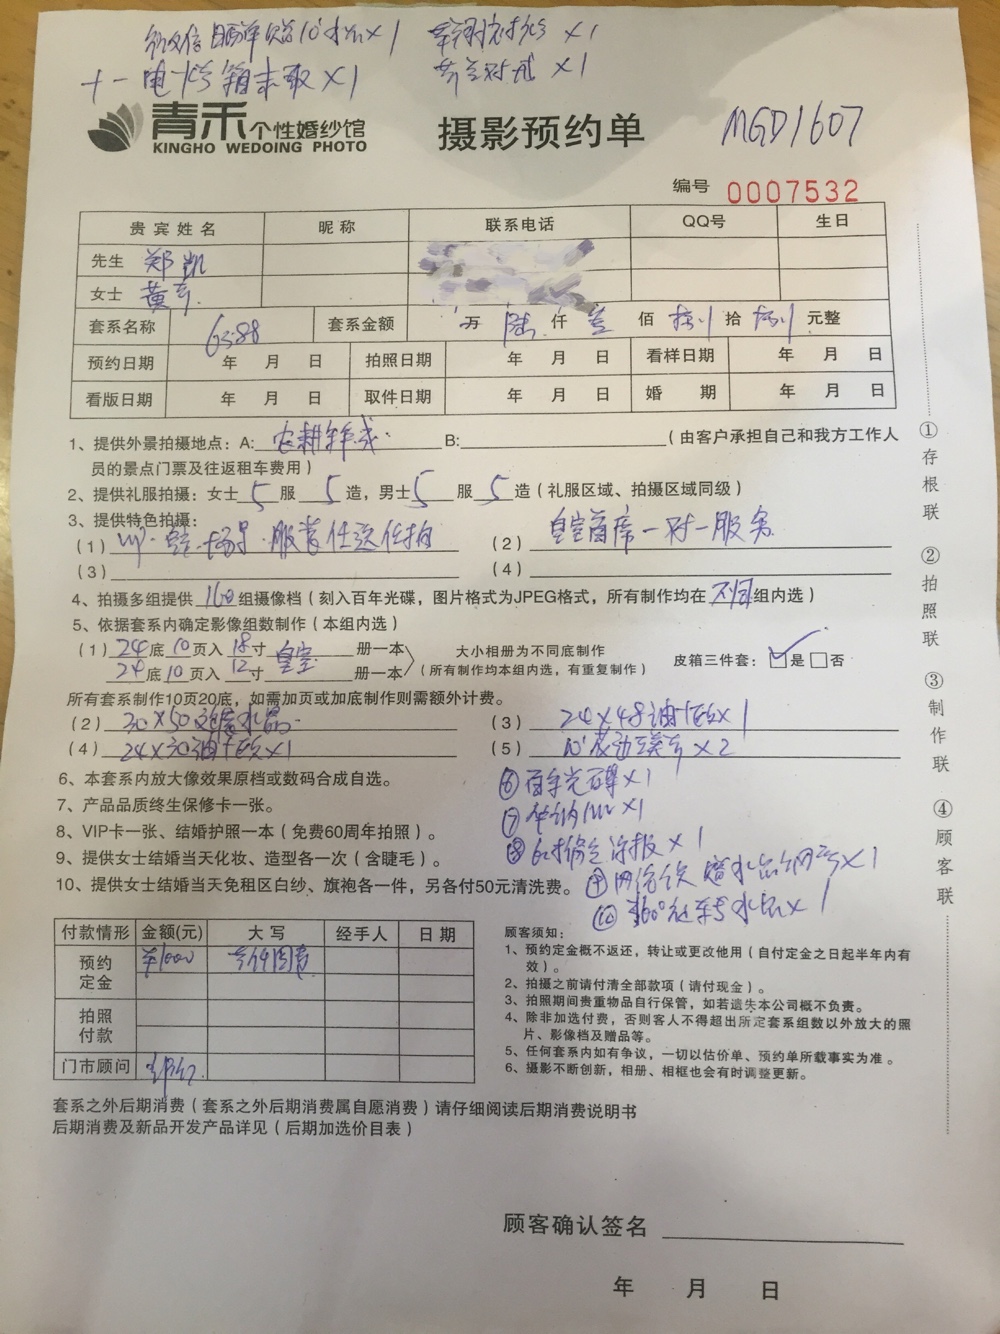 ×1 ×1
×1 ×1
青禾个性婚纱馆
KINGHO WEDOING PHOTO
摄影预约单
MGD1607
编号 0007532
贵宾姓名 昵称 联系电话 QQ号 生日
先生 郑凯
女士 黄
套系名称 6388 套系金额 万 陆 仟 壹 佰 拾 元整
预约日期 年 月 日 拍照日期 年 月 日 看样日期 年 月 日
看版日期 年 月 日 取件日期 年 月 日 婚期 年 月 日
1、提供外景拍摄地点：A: 农耕 B: （由客户承担自己和我方工作人
员的景点门票及往返租车费用）
2、提供礼服拍摄：女士5服5造，男士5服5造（礼服区域、拍摄区域同级）
3、提供特色拍摄：
（1）VIP 场景·服装任选任拍 （2）皇室首席一对一服务
（3） （4）
4、拍摄多组提供160组摄像档（刻入百年光碟，图片格式为JPEG格式，所有制作均在不同组内选）
5、依据套系内确定影像组数制作（本组内选）
（1）24底10页入18寸皇室册一本 大小相册为不同底制作 皮箱三件套：是 否
24底10页入12寸册一本 （所有制作均本组内选，有重复制作）
所有套系制作10页20底，如需加页或加底制作则需额外计费。
（2）30×50 水晶 （3）24×48油 ×1
（4）24×30油 ×1 （5）10" ×2
6、本套系内放大像效果原档或数码合成自选。
⑥百年光碟×1
7、产品品质终生保修卡一张。
⑦ ×1
8、VIP卡一张、结婚护照一本（免费60周年拍照）。
⑧ 海报×1
9、提供女士结婚当天化妆、造型各一次（含睫毛）。
⑨ 水晶 ×1
10、提供女士结婚当天免租区白纱、旗袍各一件，另各付50元清洗费。
⑩360° 水晶×1
付款情形 金额(元) 大写 经手人 日期
预约定金 ¥1000 壹仟圆
拍照付款
门市顾问
顾客须知：
1、预约定金概不返还，转让或更改他用（自付定金之日起半年内有
效）。
2、拍摄之前请付清全部款项（请付现金）。
3、拍照期间贵重物品自行保管，如若遗失本公司概不负责。
4、除非加选付费，否则客人不得超出所定套系组数以外放大的照
片、影像档及赠品等。
5、任何套系内如有争议，一切以估价单、预约单所载事实为准。
6、摄影不断创新，相册、相框也会有时调整更新。
套系之外后期消费（套系之外后期消费属自愿消费）请仔细阅读后期消费说明书
后期消费及新品开发产品详见（后期加选价目表）
顾客确认签名
年 月 日
①存根联
②拍照联
③制作联
④顾客联